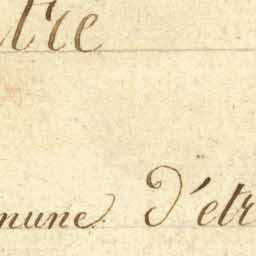 tre
mune D'etr